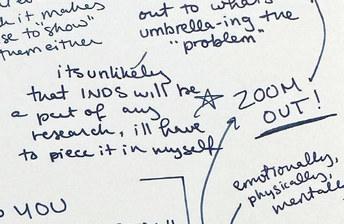 h it makes
se to "show"
them either
out to what's
umbrella-ing the
"problem"
its unlikely
that INDS will be
a part of any
research, ill have
to piece it in myself
ZOOM
OUT!
emotionally,
physically,
mentale
YOU